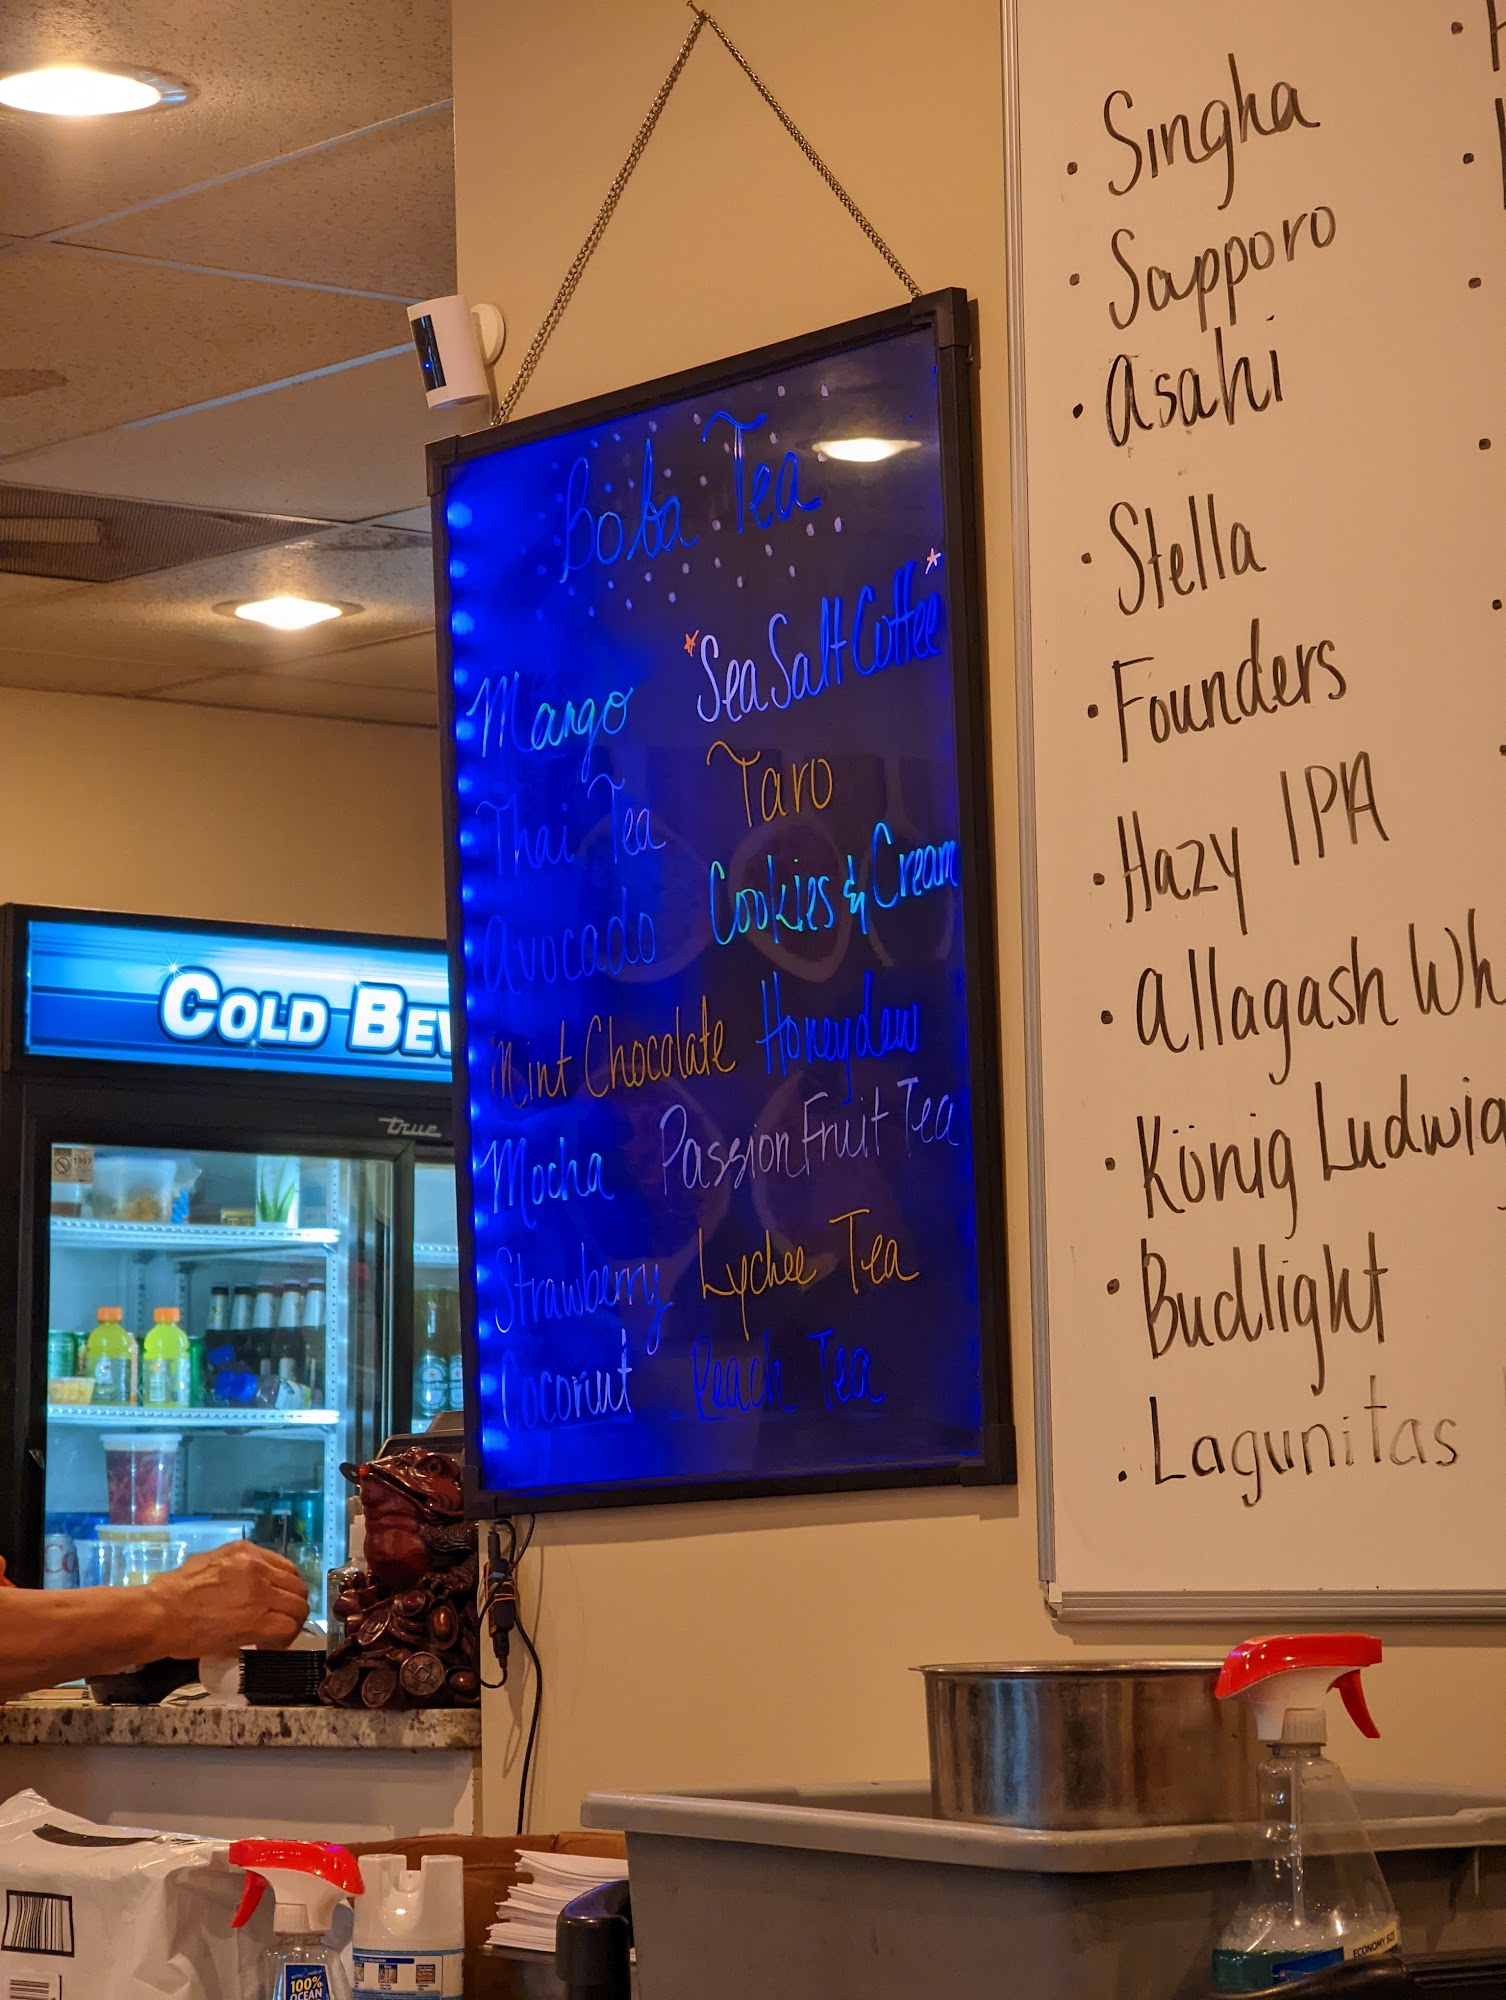 Boba Tea
Mango
Thai Tea
Avocado
Mint Chocolate
Mocha
Strawberry
Coconut
*Sea Salt Coffee*
Taro
Cookies & Cream
Honeydew
Passion Fruit Tea
Lychee Tea
Peach Tea
• Singha
• Sapporo
• Asahi
• Stella
• Founders
• Hazy IPA
• Allagash Wh
• König Ludwig
• Budlight
• Lagunitas
COLD BEV
true
1997
100%
OCEAN
ECONOMY SIZE